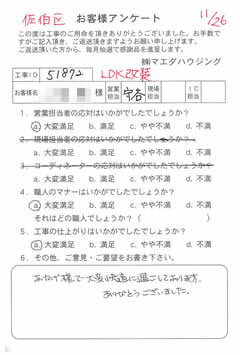 佐伯区 お客様アンケート 11/26
この度は工事のご用命を頂きありがとうございました。お手数で
すがご記入頂き、ご返送頂きますようお願い申し上げます。
ご返送頂いた方から、毎月抽選で感謝品を進呈します。
㈱マエダハウジング
工事ID 51872 LDK改装
お客様名 様 営業担当 守谷 現場担当 IC担当
1. 営業担当者の応対はいかがでしたでしょうか?
a. 大変満足 b. 満足 c. やや不満 d. 不満
2. 現場担当者の応対はいかがでしたでしょうか?
a. 大変満足 b. 満足 c. やや不満 d. 不満
3. コーディネーターの応対はいかがでしたでしょうか
a. 大変満足 b. 満足 c. やや不満 d. 不満
4. 職人のマナーはいかがでしたでしょうか?
a. 大変満足 b. 満足 c. やや不満 d. 不満
それはどの職人でしょうか?( )
5. 工事の仕上がりはいかがでしたでしょうか?
a. 大変満足 b. 満足 c. やや不満 d. 不満
6. その他、ご意見・ご要望をお書き下さい。
おかげ様で大変快適に過ごしております。
ありがとうございました。